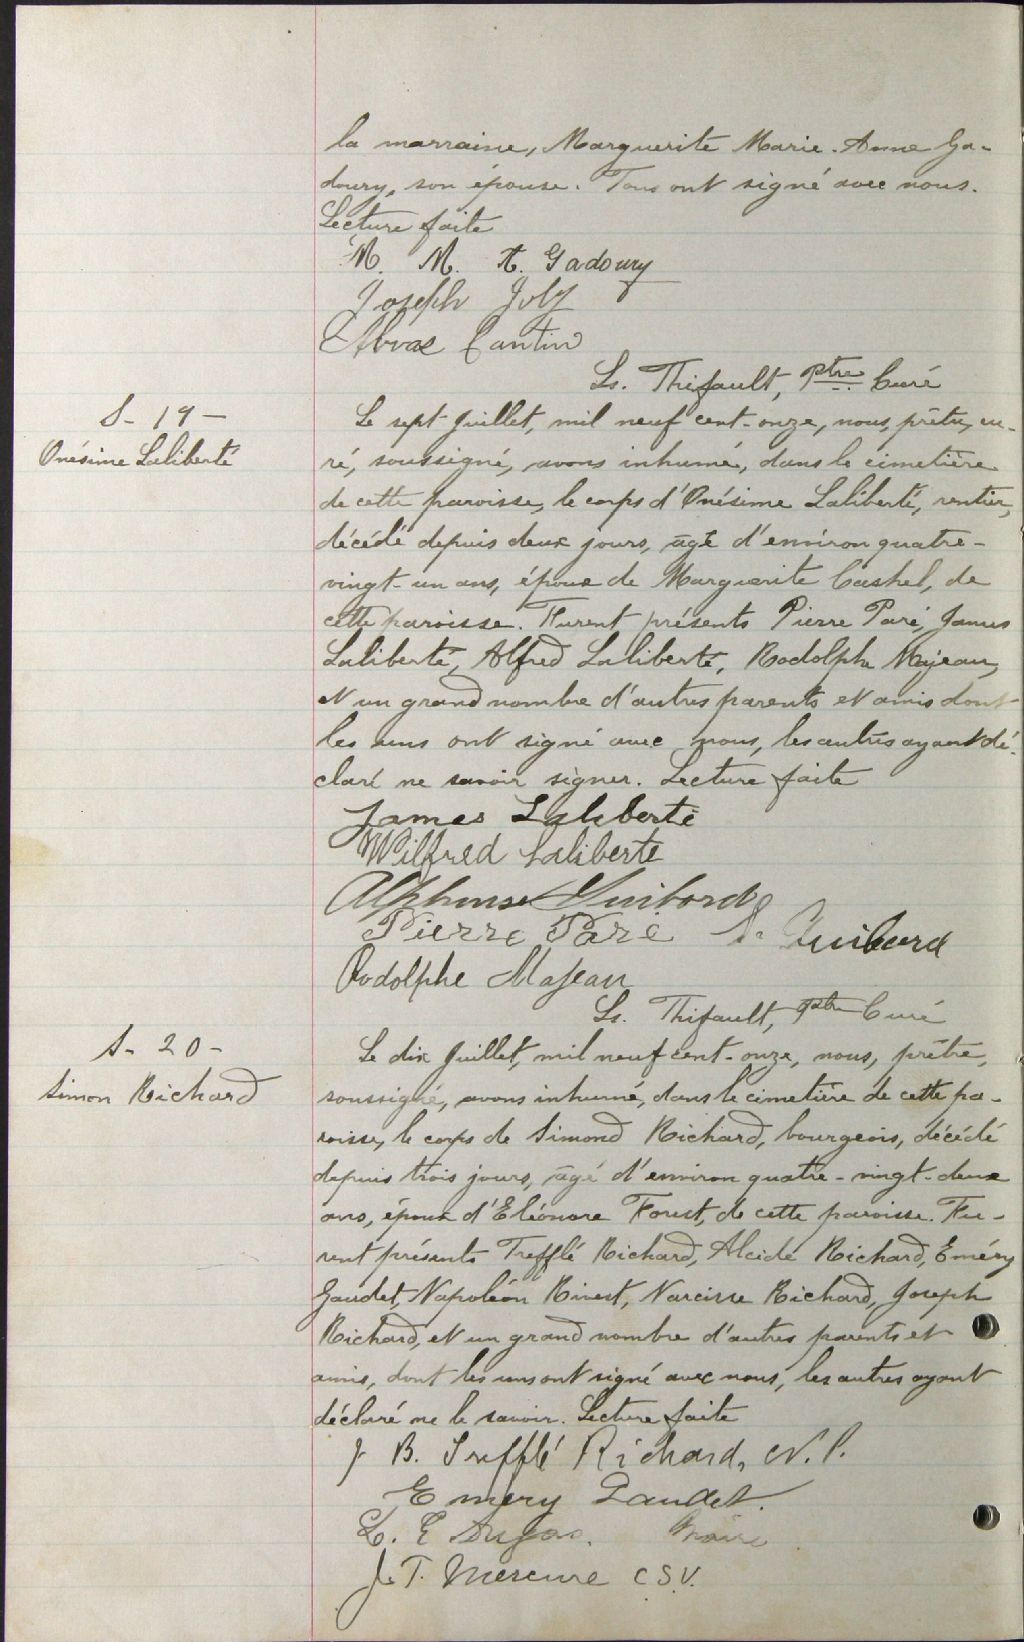 la marraine, Marguerite Marie-Anne Ga-
doury, son épouse. Tous ont signé avec nous.
Lecture faite
M. M. A. Gadoury
Joseph Joly
Cantin
Ls. Thifault, Ptre Curé
S- 19 -
Onésime Laliberté
Le sept Juillet, mil neuf cent-onze, nous, prêtre, cu-
ré, soussigné, avons inhumé, dans le cimetière
de cette paroisse, le corps d'Onésime Laliberté, rentier,
décédé depuis deux jours, âgé d'environ quatre-
vingt-un ans, époux de Marguerite Cashel, de
cette paroisse. Furent présents Pierre Paré, James
Laliberté, Alfred Laliberté, Rodolphe Majeau,
et un grand nombre d'autres parents et amis dont
les uns ont signé avec nous, les autres ayant dé-
claré ne savoir signer. Lecture faite
James Laliberté
Wilfred Laliberte
Alphonse Guibord
Pierre Paré Guibord
Rodolphe Majeau
Ls. Thifault, Ptre Curé
S- 20 -
Simon Richard
Le dix Juillet, mil neuf cent-onze, nous, prêtre,
soussigné, avons inhumé, dans le cimetière de cette pa-
roisse, le corps de Simond Richard, bourgeois, décédé
depuis trois jours, âgé d'environ quatre-vingt-deux
ans, époux d'Eléonore Forest, de cette paroisse. Fu-
rent présents Trefflé Richard, Alcide Richard, Eméry
Gaudet, Napoléon Rivest, Narcisse Richard, Joseph
Richard, et un grand nombre d'autres parents et
amis, dont les uns ont signé avec nous, les autres ayant
déclaré ne le savoir. Lecture faite
J. B. Trefflé Richard, N. P.
Emery Gaudet.
L. E Dugas. Maire
J. T. Mercure C.S.V.